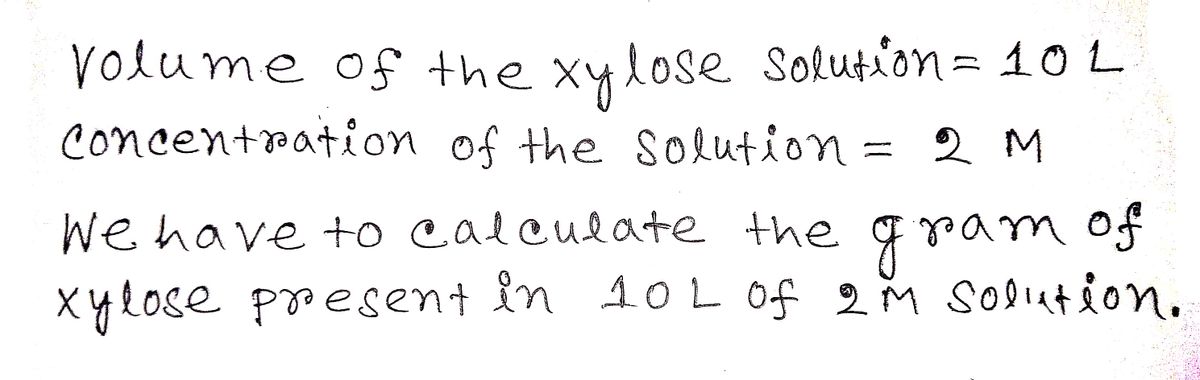 Volume of the xylose solution = 10 L
Concentration of the solution = 2 M
We have to calculate the gram of
xylose present in 10 L of 2 M solution.